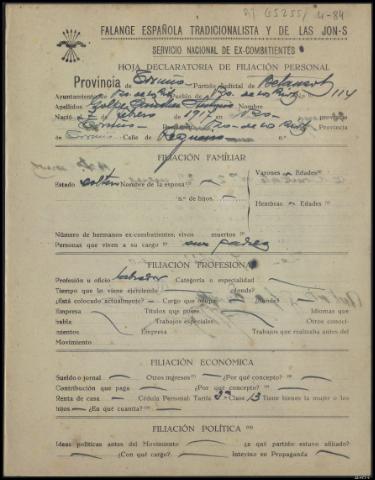 FALANGE ESPAÑOLA TRADICIONALISTA Y DE LAS JON-S
SERVICIO NACIONAL DE EX-COMBATIENTES
HOJA DECLARATORIA DE FILIACIÓN PERSONAL
Provincia de Coruña Partido Judicial de Betanzos
Ayuntamiento de
Apellidos Nombre
Nació el de febrero de 1917 en
Coruña Provincia
Coruña Calle de n.º
FILIACIÓN FAMILIAR
Varones — Edades
Estado soltero Nombre de la esposa
n.º de hijos
Hembras — Edades
Número de hermanos ex-combatientes, vivos muertos
Personas que viven a su cargo sus padres
FILIACIÓN PROFESIONAL
Profesión u oficio labrador Categoría o especialidad
Tiempo que lo viene ejerciendo
¿Está colocado actualmente? Cargo que ocupa ¿Dónde?
Empresa Títulos que posee Idiomas que
habla Trabajos especiales Otros conoci-
mientos Empresa Trabajos que realizaba antes del
Movimiento
FILIACIÓN ECONÓMICA
Sueldo o jornal Otros ingresos ¿Por qué concepto?
Contribución que paga ¿Por qué concepto?
Renta de casa Cédula Personal Tarifa 3ª Clase 13 Tiene bienes la mujer o los
hijos ¿En qué cuantía?
FILIACIÓN POLÍTICA
Ideas políticas antes del Movimiento ¿a qué partido estuvo afiliado?
¿Con qué cargo? Intervino en Propaganda